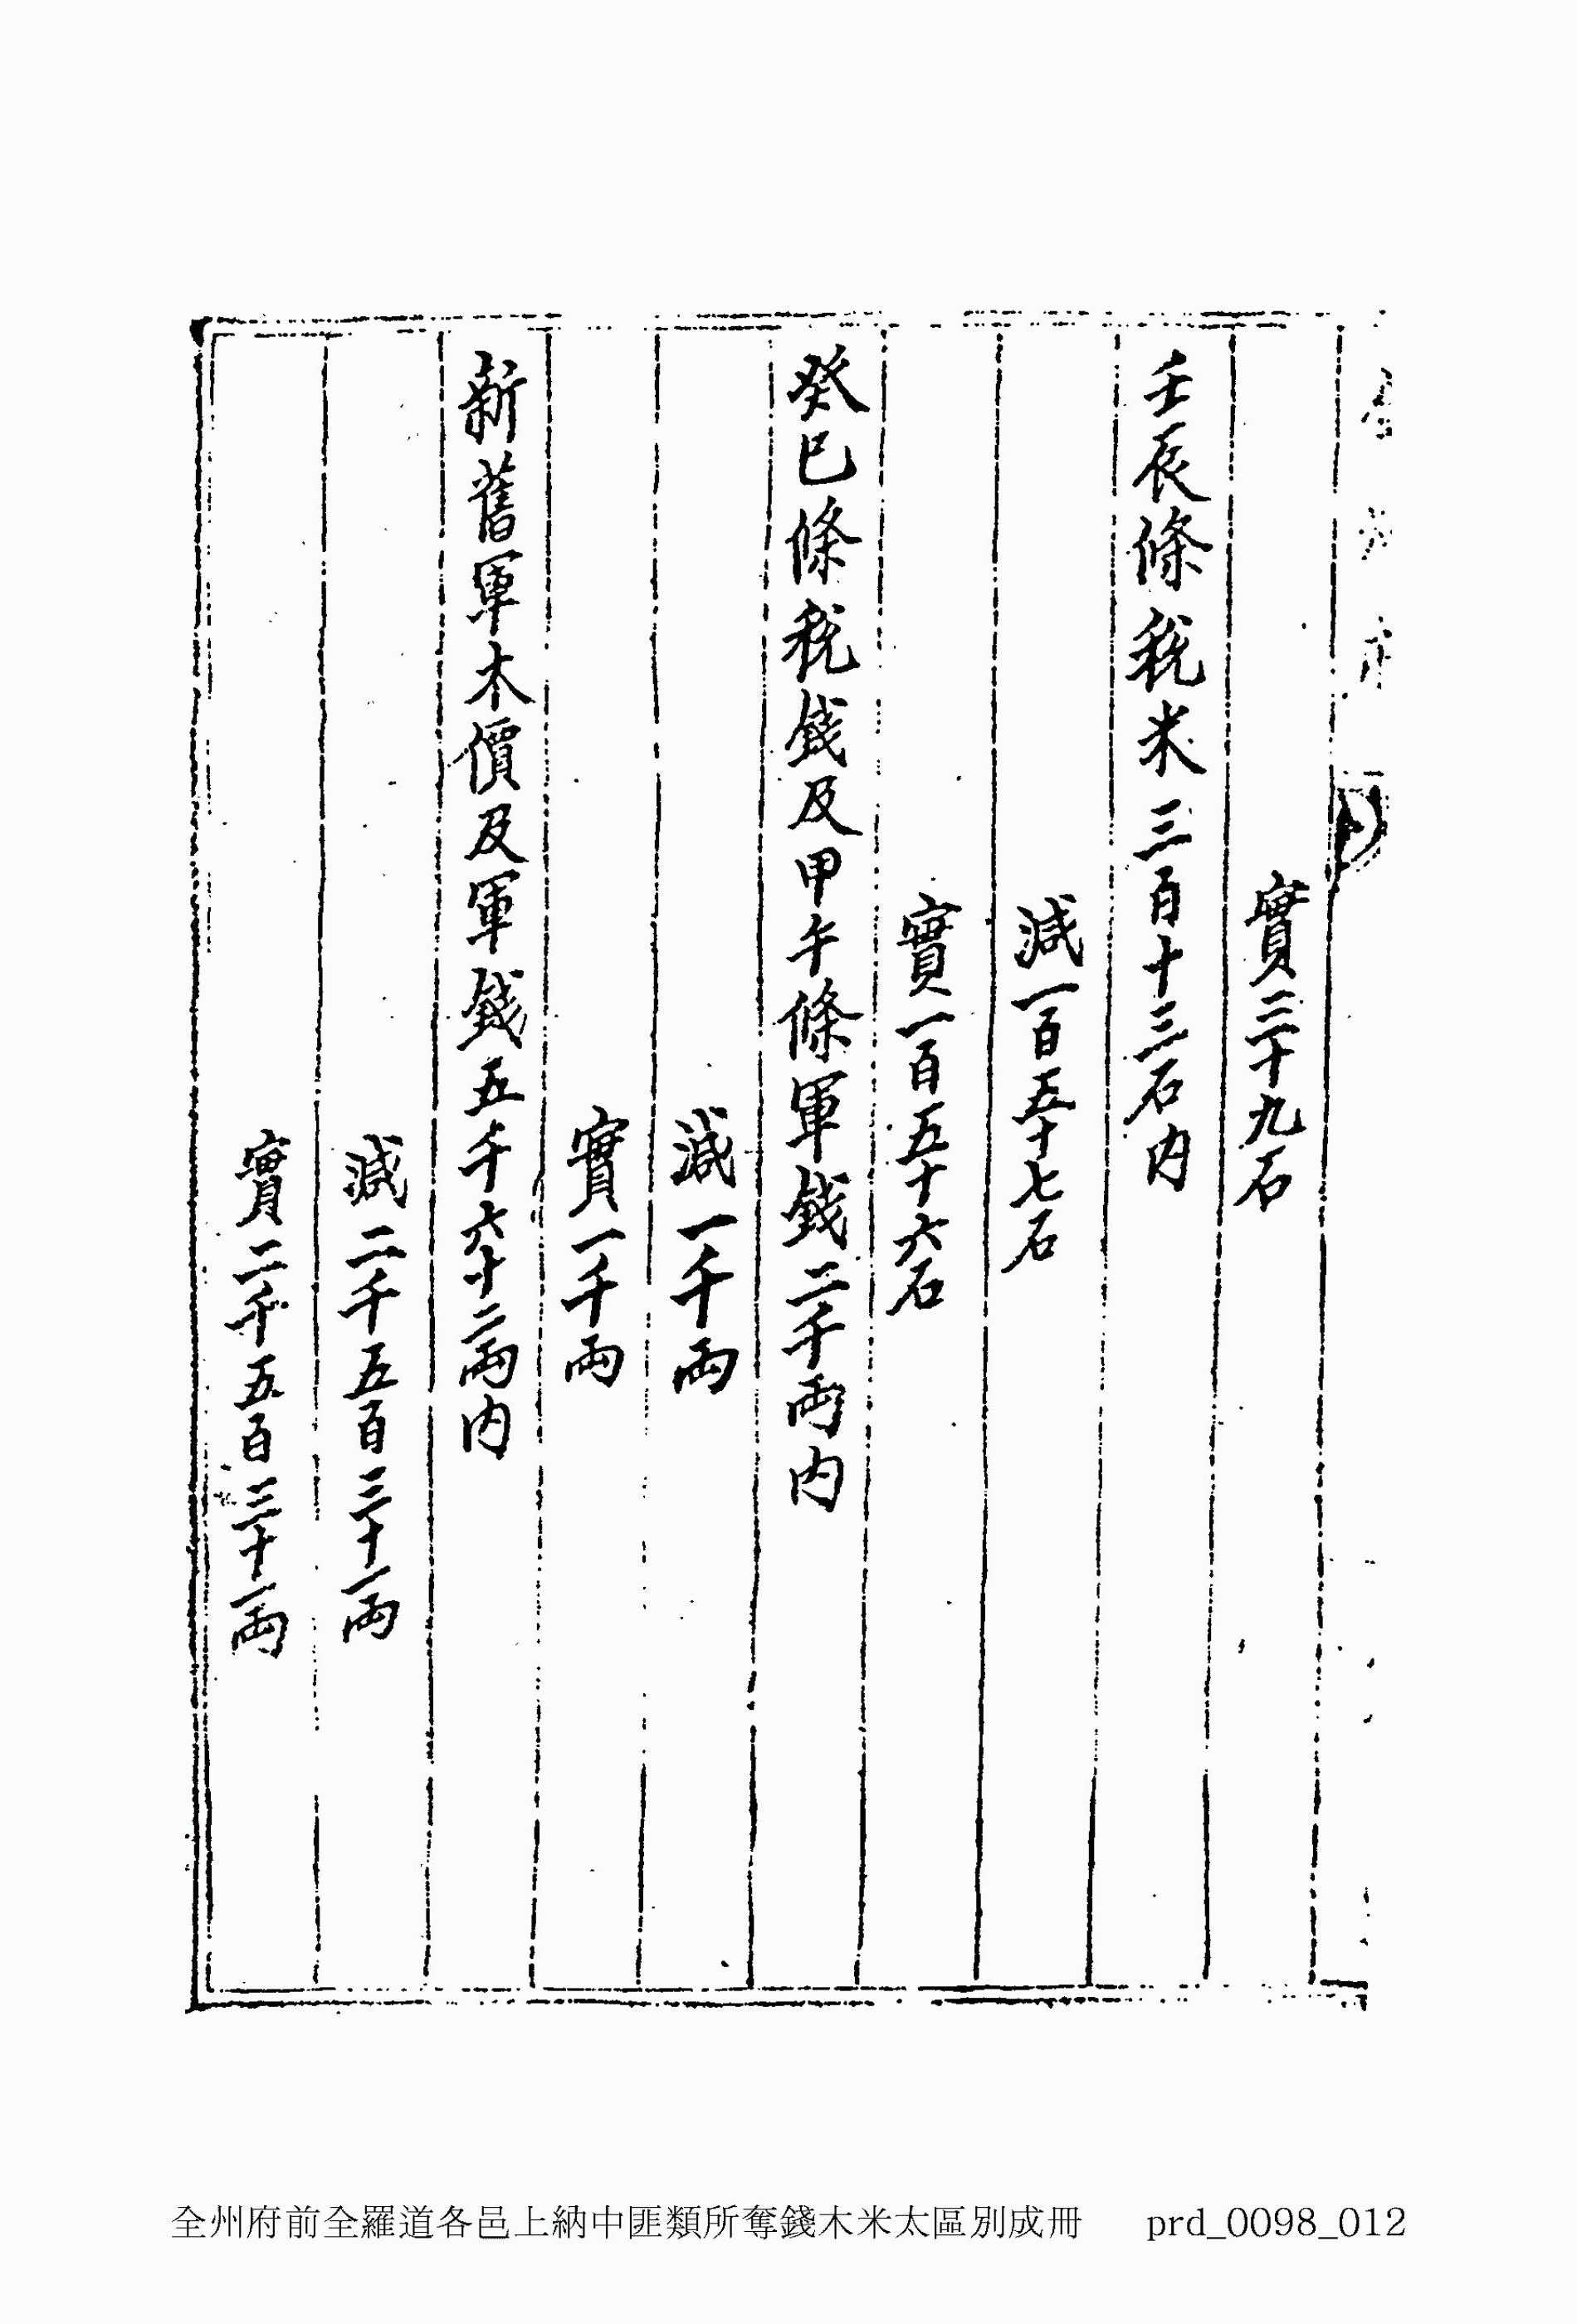 實三十九石
壬辰條税米三百十三石内
減一百五十七石
實一百五十六石
癸巳條税錢及甲午條軍錢二千両内
減一千両
實一千両
新舊軍木價及軍錢五千六十二両内
減二千五百三十一両
實二千五百三十一両
全州府前全羅道各邑上納中匪類所奪錢木米太區別成冊 prd_0098_012